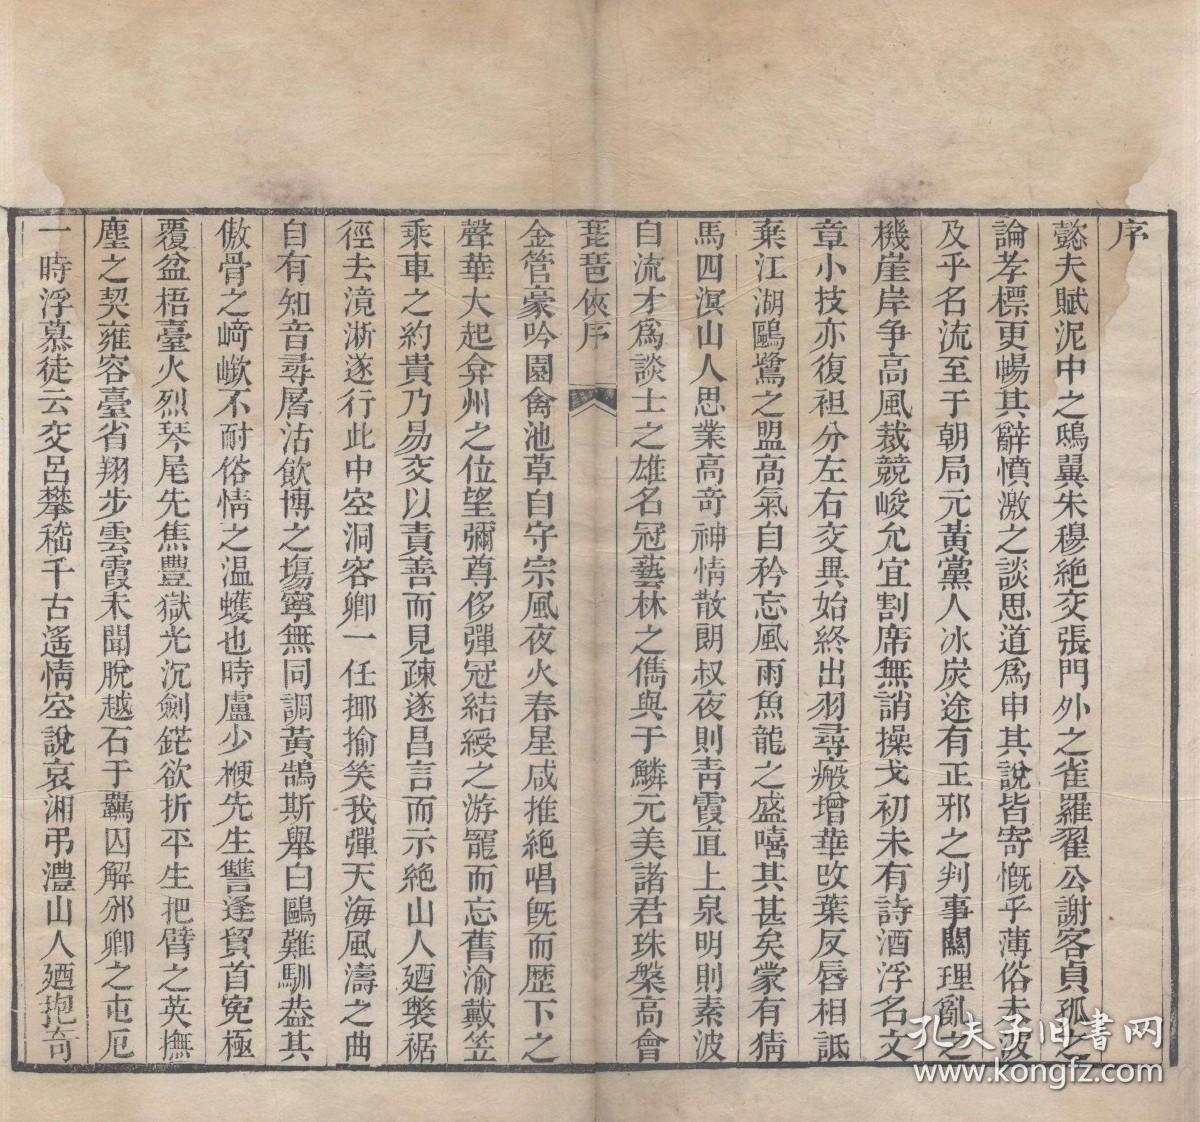 序
懿夫賦泥中之鴟翼朱穆絶交張門外之雀羅翟公謝客貞孤之
論孝標更暢其辭憤激之談思道爲申其説皆寄慨乎薄俗未波
及乎名流至于朝局元黃黨人冰炭途有正邪之判事關理亂之
機崖岸争高風裁競峻允宜割席無誚操戈初未有詩酒浮名文
章小技亦復袒分左右交異始終出羽尋瘢增華改葉反唇相詆
棄江湖鷗鷺之盟高氣自矜忘風雨魚龍之盛嘻其甚矣蒙有猜
馬四溟山人思業高竒神情散朗叔夜則青霞直上泉明則素波
自流才爲談士之雄名冠藝林之儁與于鱗元美諸君珠槃高會
琵琶俠序
金管豪吟園禽池草自守宗風夜火春星咸推絶唱旣而歴下之
聲華大起弇州之位望彌尊侈彈冠結綬之游寵而忘舊渝戴笠
乘車之約貴乃易交以責善而見疎遂昌言而示絶山人廼褧裾
徑去滰淅遂行此中空洞客卿一任揶揄笑我彈天海風濤之曲
自有知音尋屠沽飲博之塲寧無同調黃鵠斯舉白鷗難馴葢其
傲骨之﨑嶔不耐俗情之温蠖也時盧少楩先生讐逢貿首寃極
覆盆梧臺火烈琴尾先焦豐獄光沉劍鋩欲折平生把臂之英撫
塵之契雍容臺省翔步雲霞未聞脫越石于羈囚解邠卿之屯厄
一時浮慕徒云交呂攀嵇千古遙情空說哀湘弔澧山人廼抱奇
孔夫子旧書网
www.kongfz.com